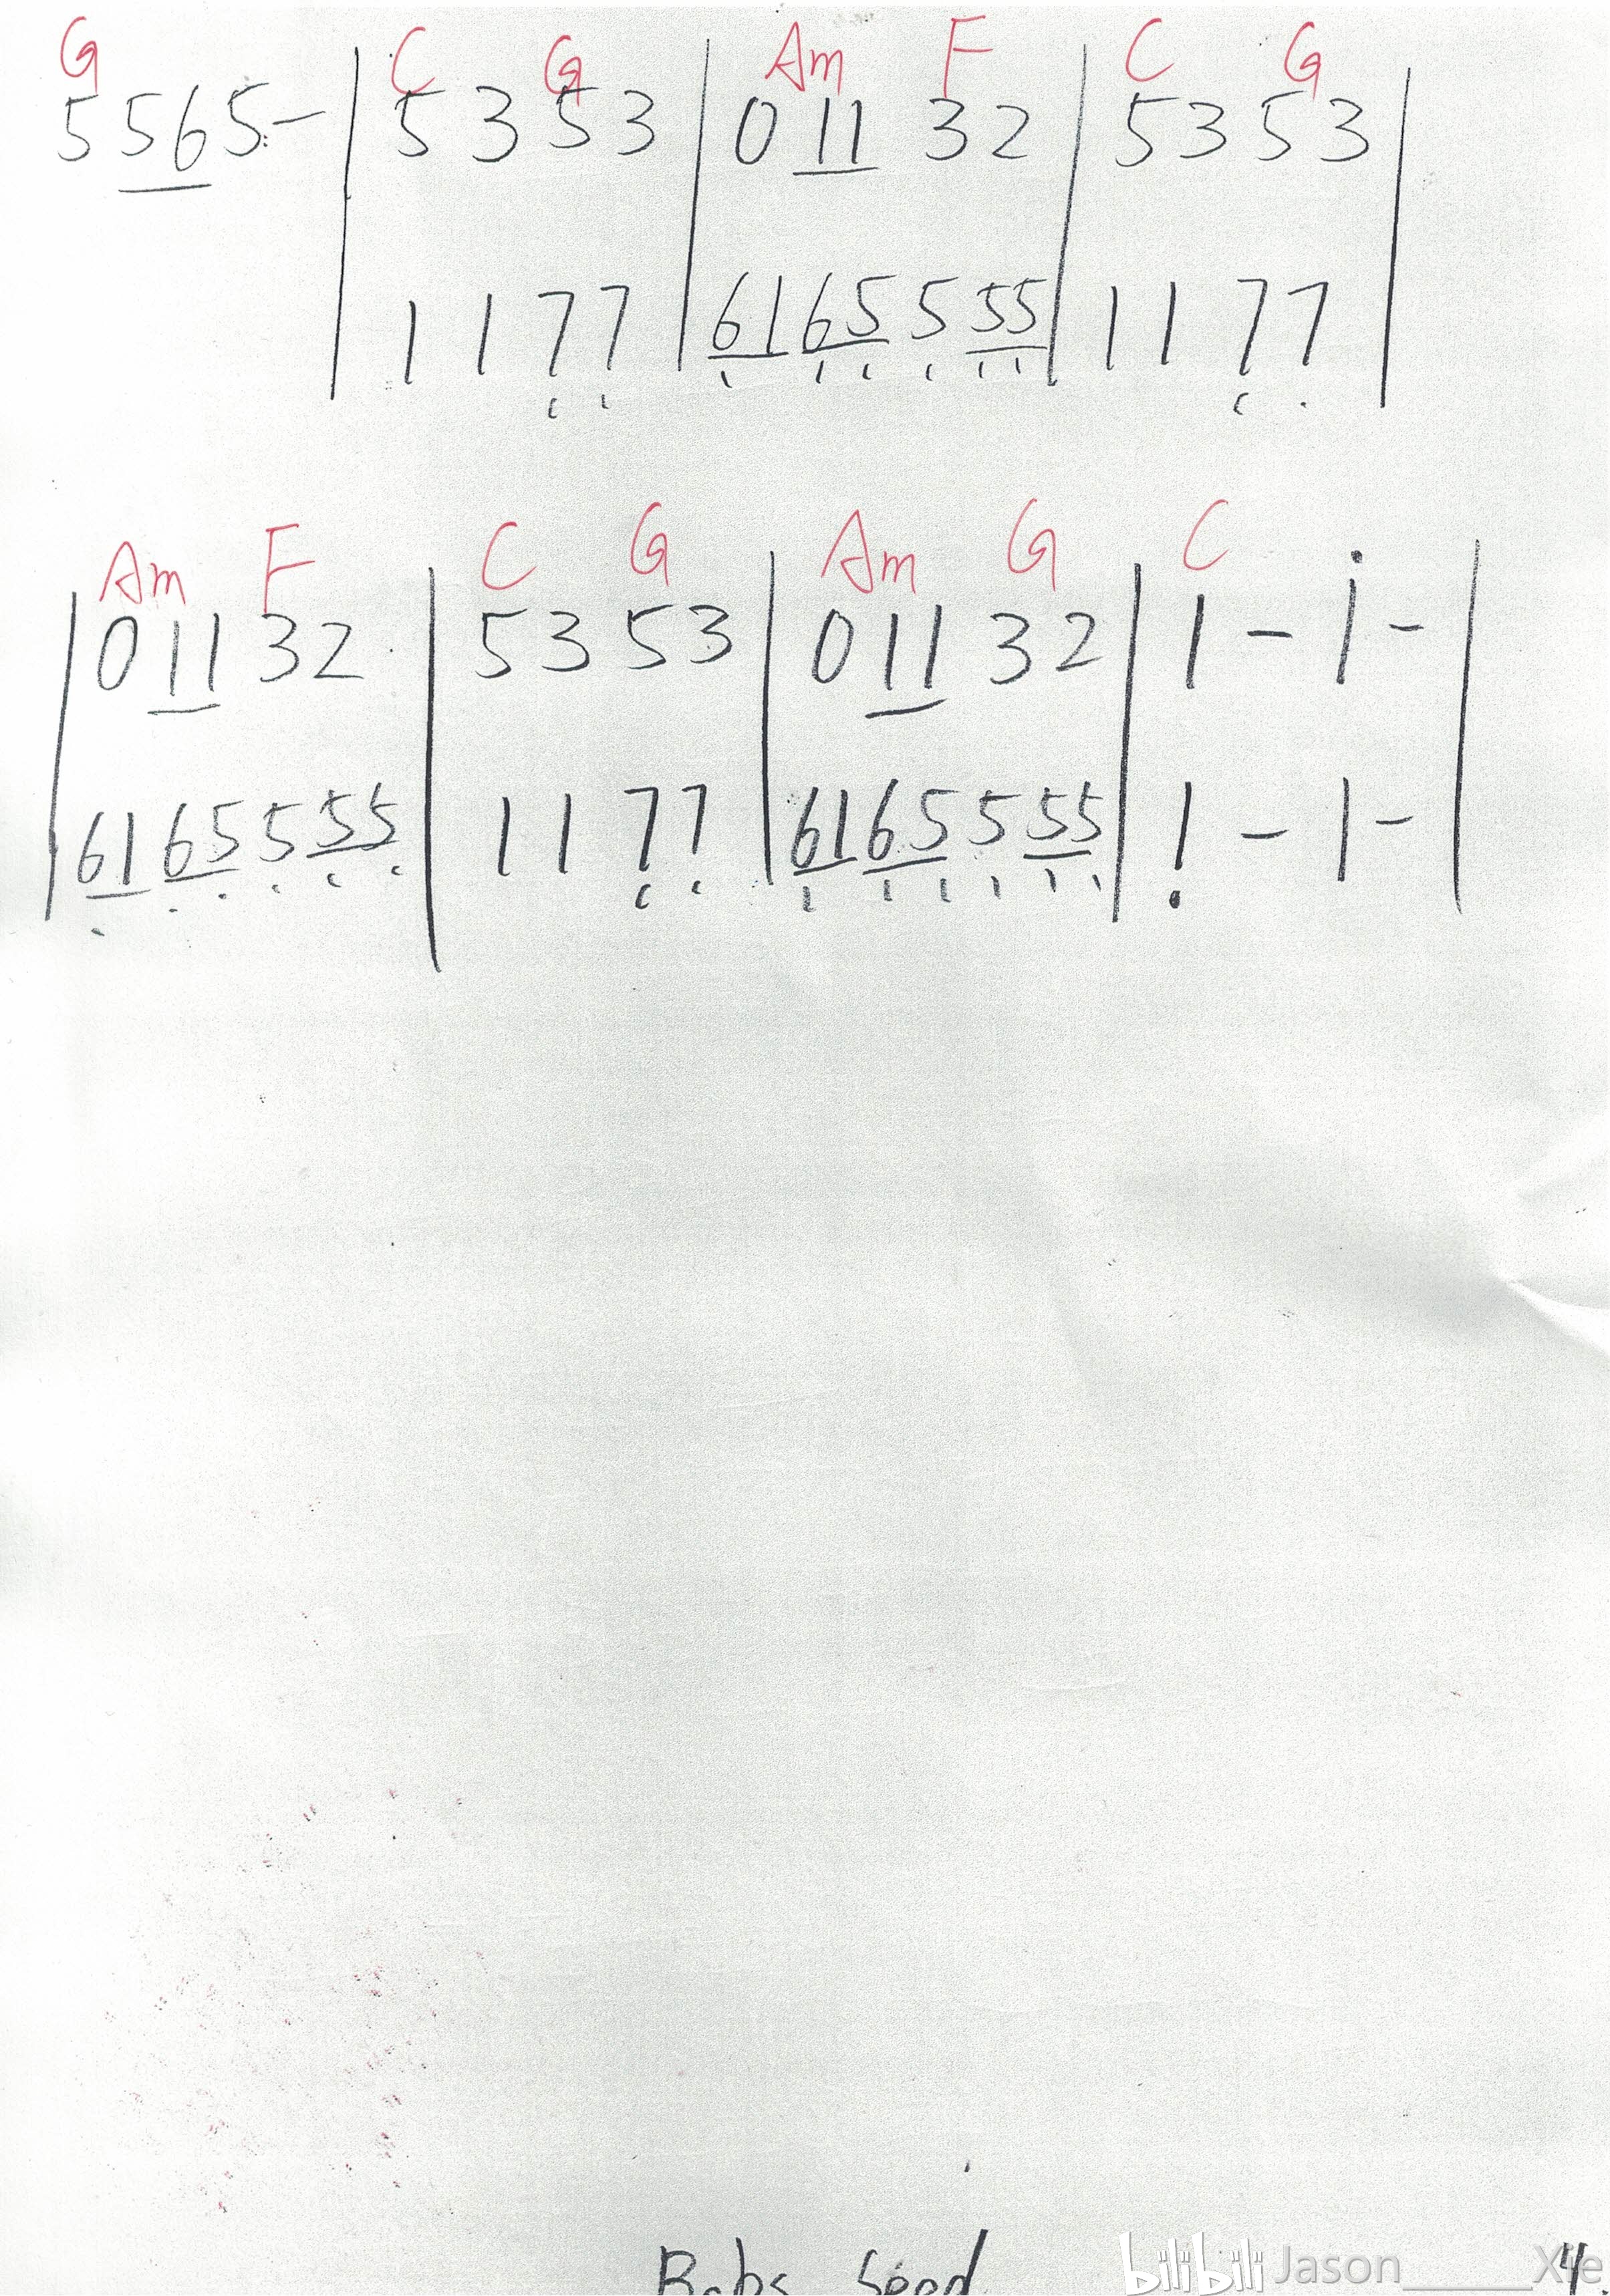 G C G Am F C G
5 5 6 5 - | 5 3 5 3 | 0 1 1 3 2 | 5 3 5 3 |
| 1 1 7 7 | 6 1 6 5 5 5 5 | 1 1 7 7 |
Am F C G Am G C
| 0 1 1 3 2 | 5 3 5 3 | 0 1 1 3 2 | 1 - i - |
| 6 1 6 5 5 5 5 | 1 1 7 7 | 6 1 6 5 5 5 5 | 1 - 1 - |
Babs Seed
bilibili Jason_____Xie
4